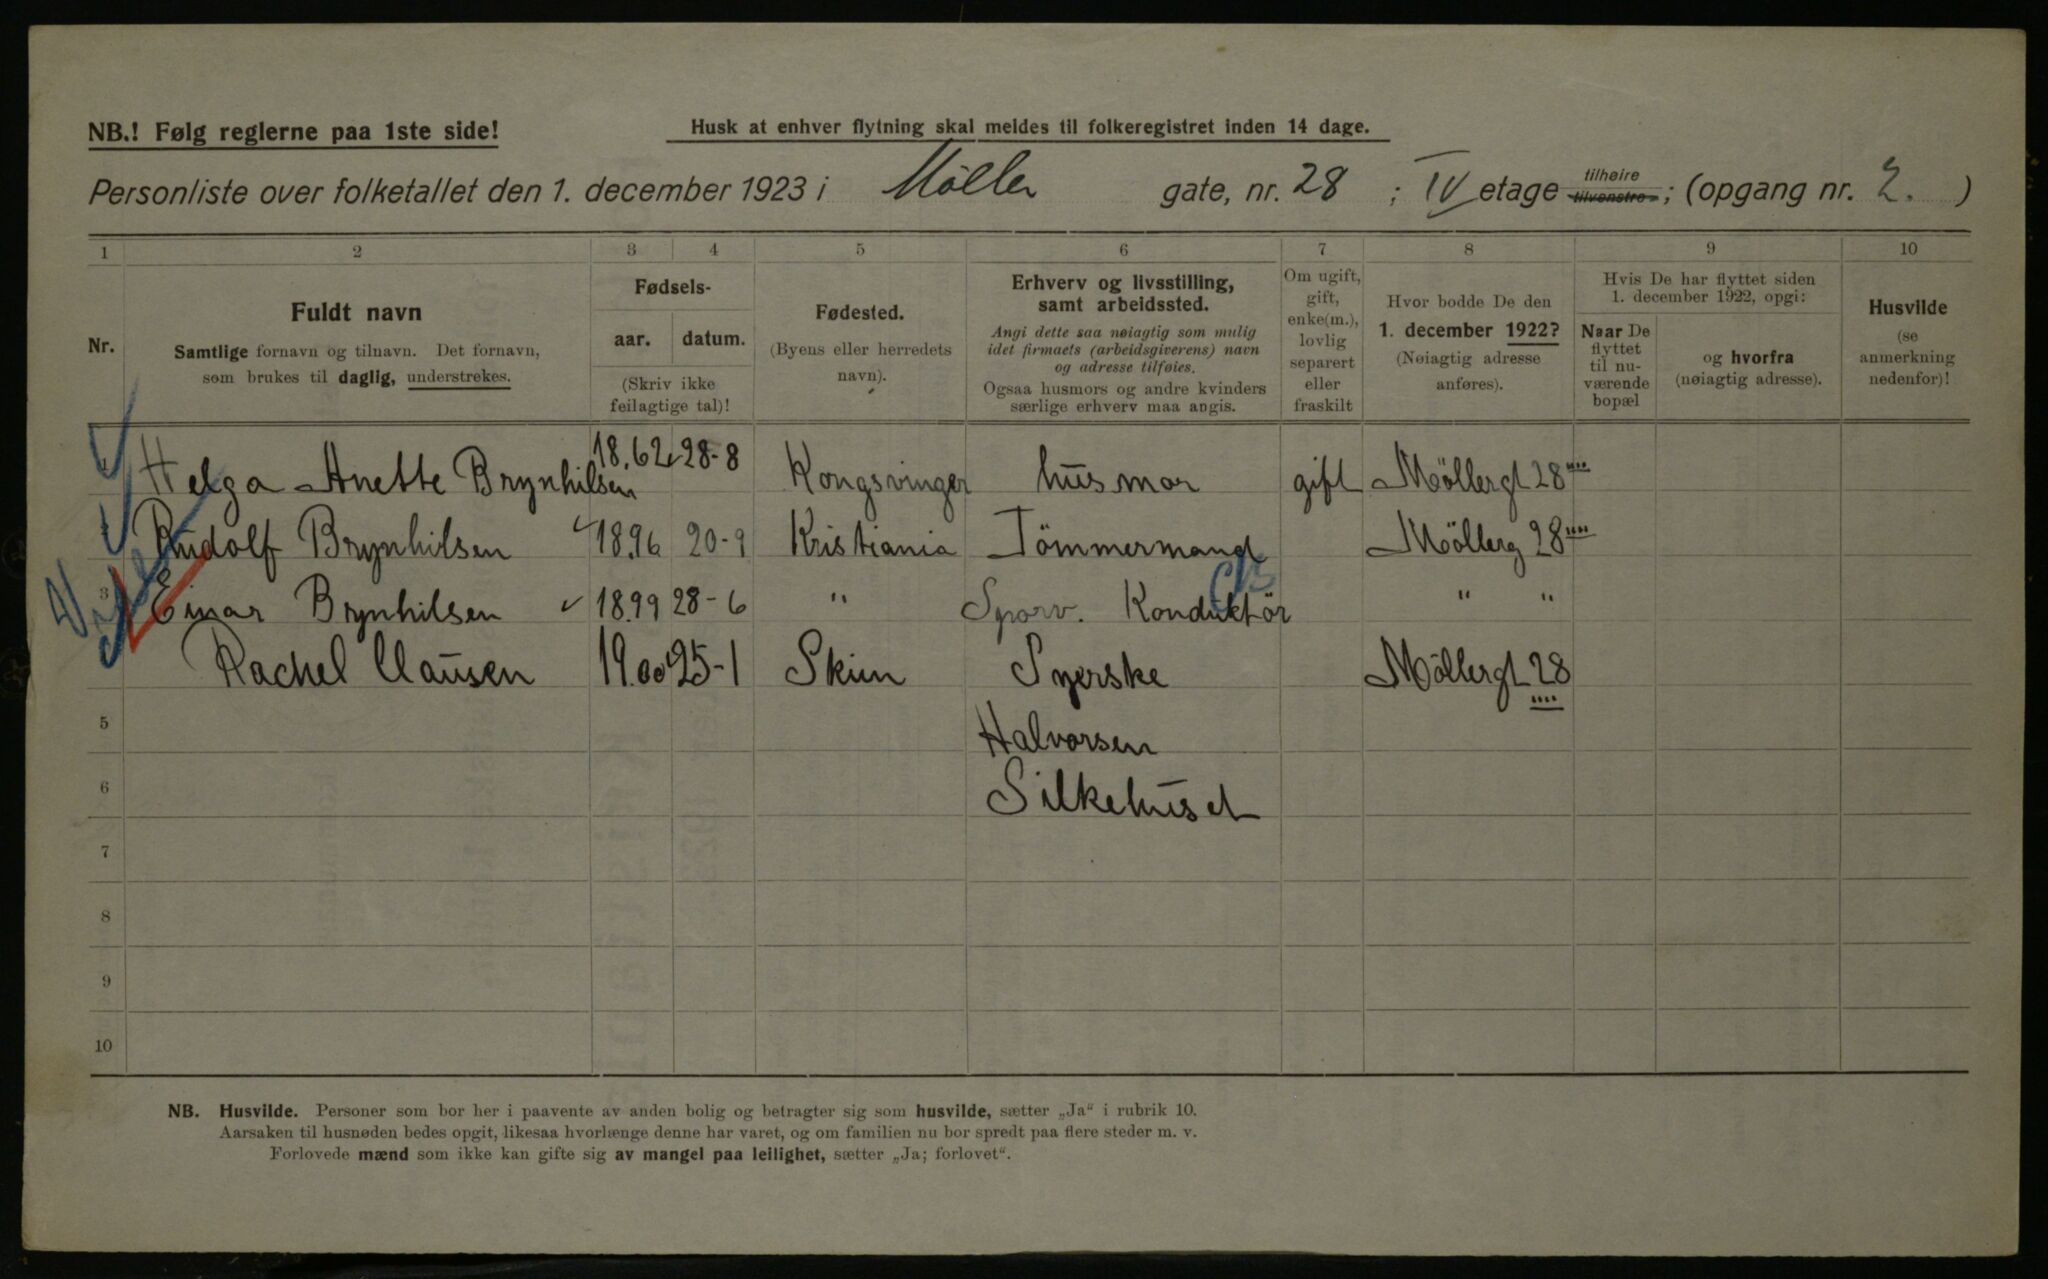 NB.! Følg reglerne paa 1ste side!
Husk at enhver flytning skal meldes til folkeregistret inden 14 dage.
Personliste over folketallet den 1. december 1923 i Möller gate, nr. 28 ; IV etage tilhøire tilvenstre ; (opgang nr. 2. )
1 2 3 4 5 6 7 8 9 10
Nr.
Fuldt navn
Samtlige fornavn og tilnavn. Det fornavn,
som brukes til daglig, understrekes.
Fødsels-
aar. datum.
(Skriv ikke
feilagtige tal)!
Fødested.
(Byens eller herredets
navn).
Erhverv og livsstilling,
samt arbeidssted.
Angi dette saa nøiagtig som mulig
idet firmaets (arbeidsgiverens) navn
og adresse tilføies.
Ogsaa husmors og andre kvinders
særlige erhverv maa angis.
Om ugift,
gift,
enke(m.),
lovlig
separert
eller
fraskilt
Hvor bodde De den
1. december 1922?
(Nøiagtig adresse
anføres).
Hvis De har flyttet siden
1. december 1922, opgi:
Naar De
flyttet
til nu-
værende
bopæl
og hvorfra
(nøiagtig adresse).
Husvilde
(se
anmerkning
nedenfor)!
Helga Anette Brynhilsen 18.62 28-8 Kongsvinger husmor gift Möllergt 28""
Rudolf Brynhilsen 18.96 20-9 Kristiania Tömmermand Möllerg 28""
3 Einar Brynhilsen 18.99 28-6 " Sporv. Konduktör " "
Rachel Clausen 19.00 25-1 Skien Syerske Möllergt 28
""
5 Halvorsen
6 Silkehuset
7
8
9
10
NB. Husvilde. Personer som bor her i paavente av anden bolig og betragter sig som husvilde, sætter „Ja“ i rubrik 10.
Aarsaken til husnøden bedes opgit, likesaa hvorlænge denne har varet, og om familien nu bor spredt paa flere steder m. v.
Forlovede mænd som ikke kan gifte sig av mangel paa leilighet, sætter „Ja; forlovet“.